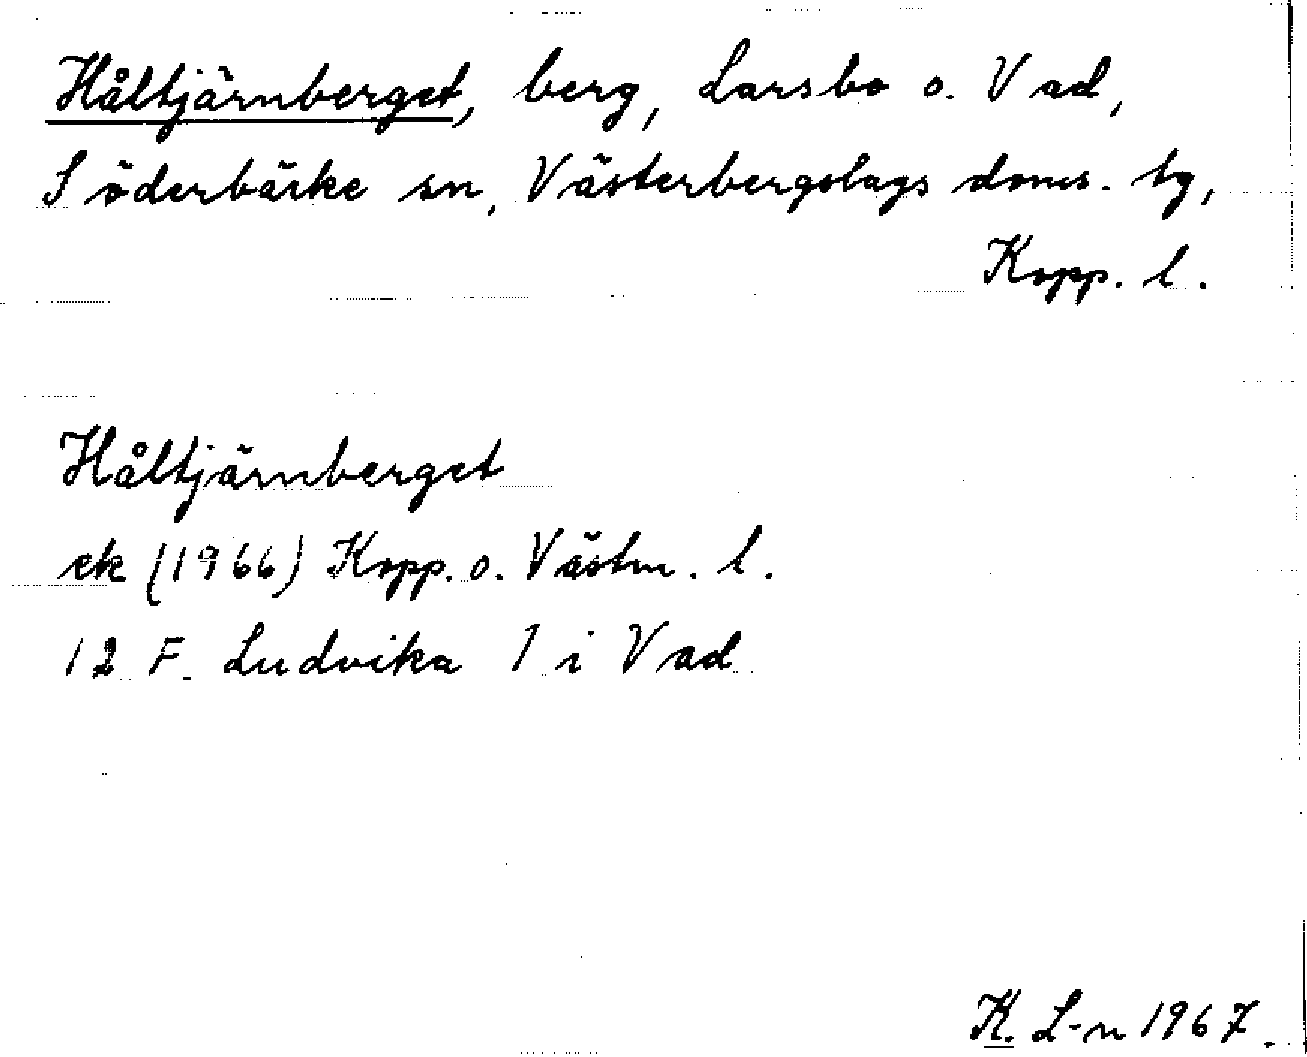 Håltjärnberget, berg, Larsbo o. Vad,
Söderbärke sn, Västerbergslags doms. tg,
Kopp. l.
Håltjärnberget
ek (1966) Kopp. o. Västm. l.
12 F. Ludvika 1 i Vad
K. L-n 1967.